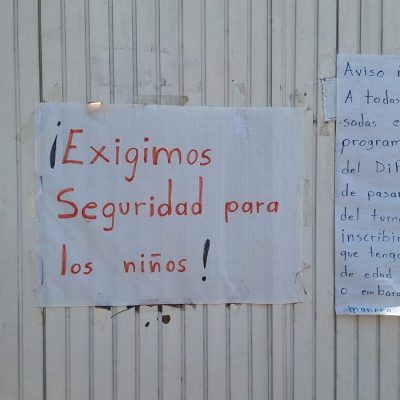 ¡Exigimos
Seguridad para
los niños!
Aviso
A todas
sadas e
program
del Dif
de pasar
del turn
inscribir
que tenga
de edad
o embar
manera